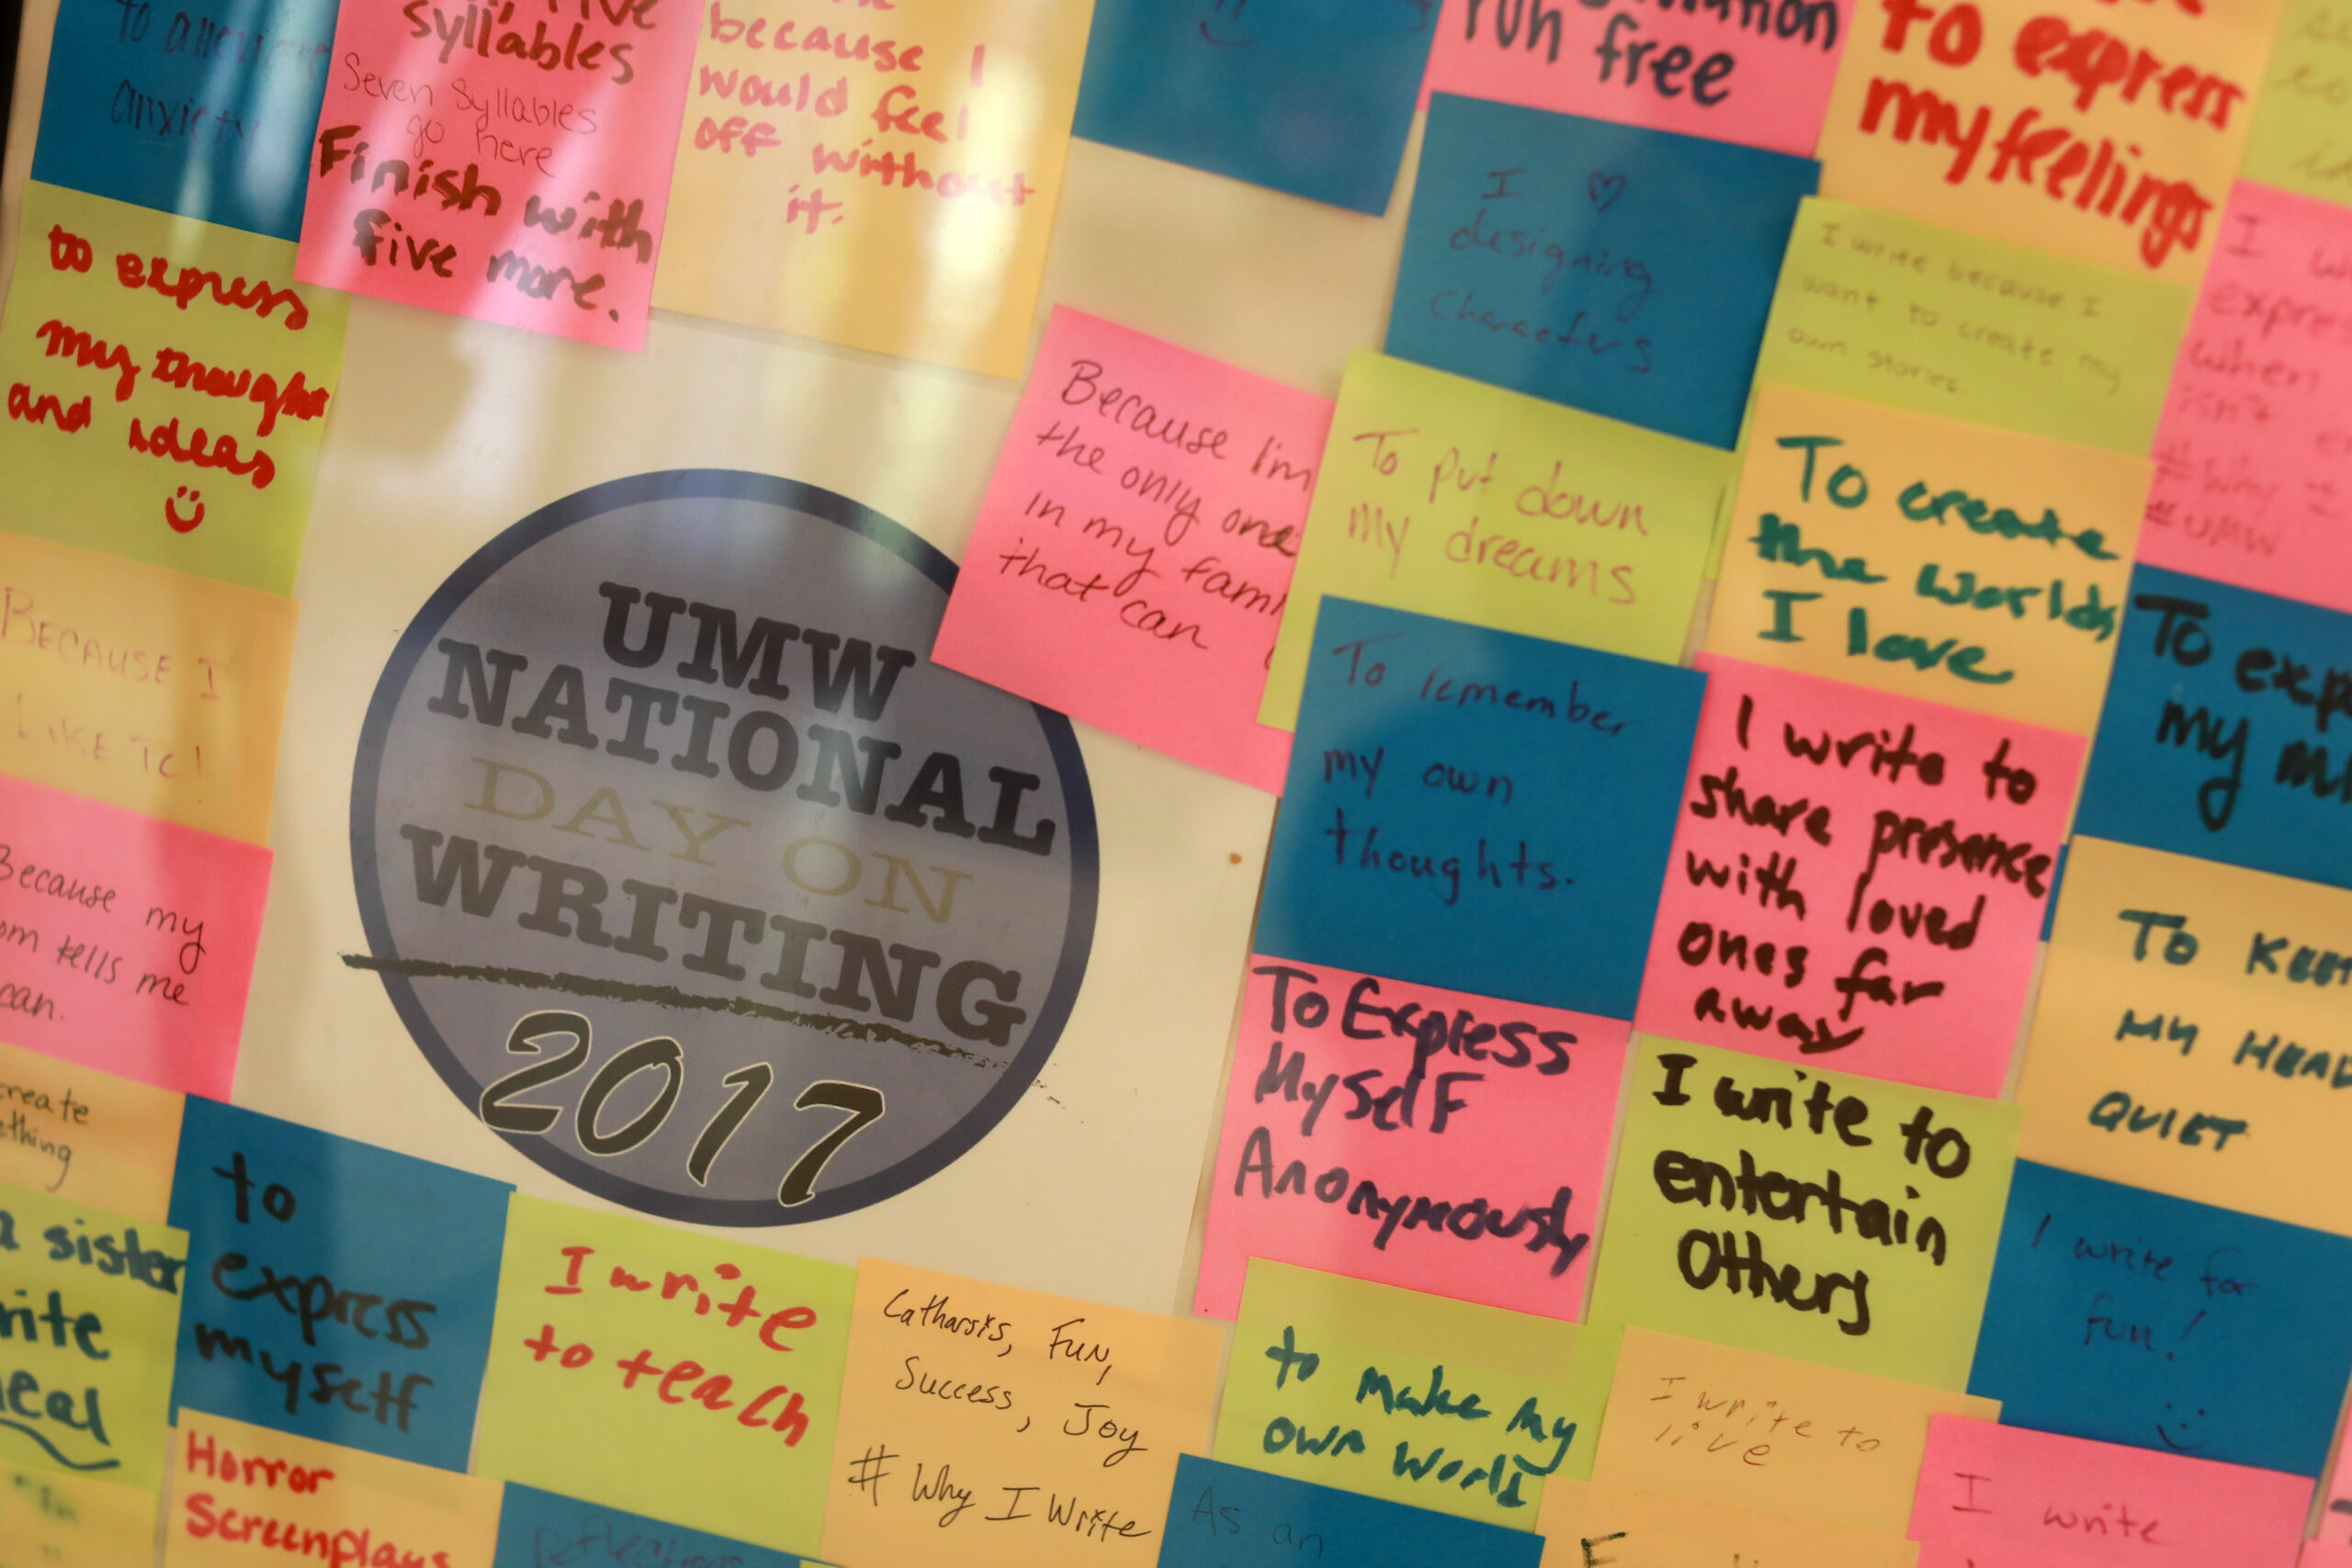 to alleviate
anxiety
syllables
Seven Syllables
go here
Finish with
five more.
because I
would feel
off without
it.
run free
to express
my feelings
to express
my thoughts
and ideas
I ♡
designing
characters
I write because I
want to create my
own stories
I
when
isn't
#Why I
#UMW
Because I'm
the only one
in my
that can
To put down
my dreams
To create
the worlds
I love
BECAUSE I
LIKE TO!
UMW
NATIONAL
DAY ON
WRITING
2017
To remember
my own
thoughts.
I write to
share presence
with loved
ones far
away
To
my
Because my
tells me
can.
To Express
Myself
Anonymously
I write to
entertain
Others
TO
MY
QUIET
create
a sister
to
express
myself
I write
to teach
Catharsis, Fun,
Success, Joy
# Why I Write
to make my
own world
I write to
live
I write for
fun!
Horror
Screenplays
Reflections
As an
I write